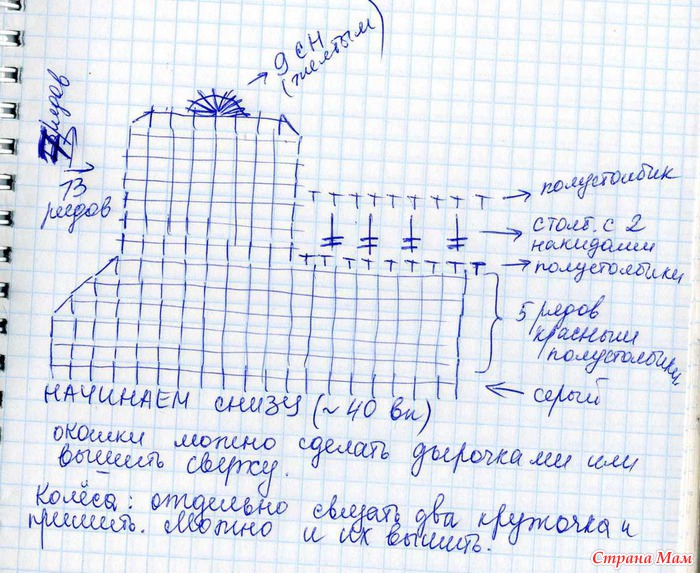 9 СН
(желтым)
рядов
13
рядов
полустолбик
столб. с 2
накидами
полустолбики
5 рядов
красными
полустолбики
серый
НАЧИНАЕМ СНИЗУ (~ 40 вп)
окошки можно сделать дырочками или
вышить сверху.
Колёса: отдельно связать два кружочка и
пришить. Можно и их вышить.
Страна Мам